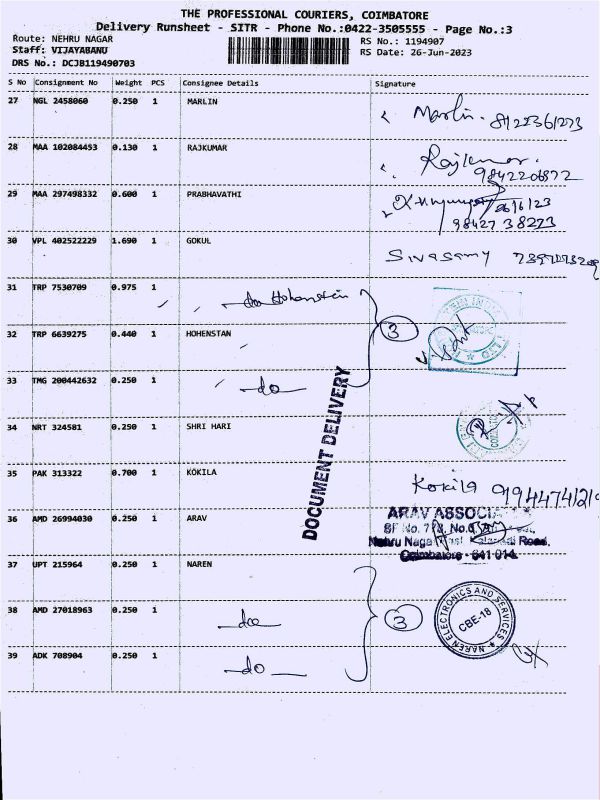 THE PROFESSIONAL COURIERS, COIMBATORE
Delivery Runsheet - SITR - Phone No.:0422-3505555 - Page No.:3
Route: NEHRU NAGAR
Staff: VIJAYABANU
DRS No.: DCJB119490703
RS No.: 1194907
RS Date: 26-Jun-2023
S No Consignment No Weight PCS Consignee Details Signature
27 NGL 2458060 0.250 1 MARLIN Marlin. 8122361273
28 MAA 102084453 0.130 1 RAJKUMAR Rajkumar. 9842206872
29 MAA 297498332 0.600 1 PRABHAVATHI 26/6/23
98427 38273
30 VPL 402522229 1.690 1 GOKUL Sivasamy
31 TRP 7530709 0.975 1 do Hohenstein
32 TRP 6639275 0.440 1 HOHENSTAN 3
33 TMG 200442632 0.250 1 do
DOCUMENT DELIVERY
34 NRT 324581 0.250 1 SHRI HARI
35 PAK 313322 0.700 1 KOKILA Kokila
36 AMD 26994030 0.250 1 ARAV ARAV ASSOCIA
Nehru Naga Road,
Coimbatore - 641 014.
37 UPT 215964 0.250 1 NAREN
38 AMD 27018963 0.250 1 do 3
NAREN ELECTRONICS AND SERVICES
CBE-18
39 ADK 708904 0.250 1 do